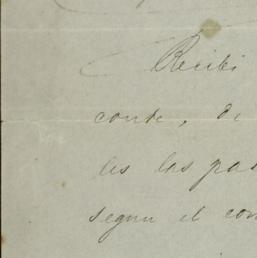 Recibi
conte, de
les las pas
segun el con